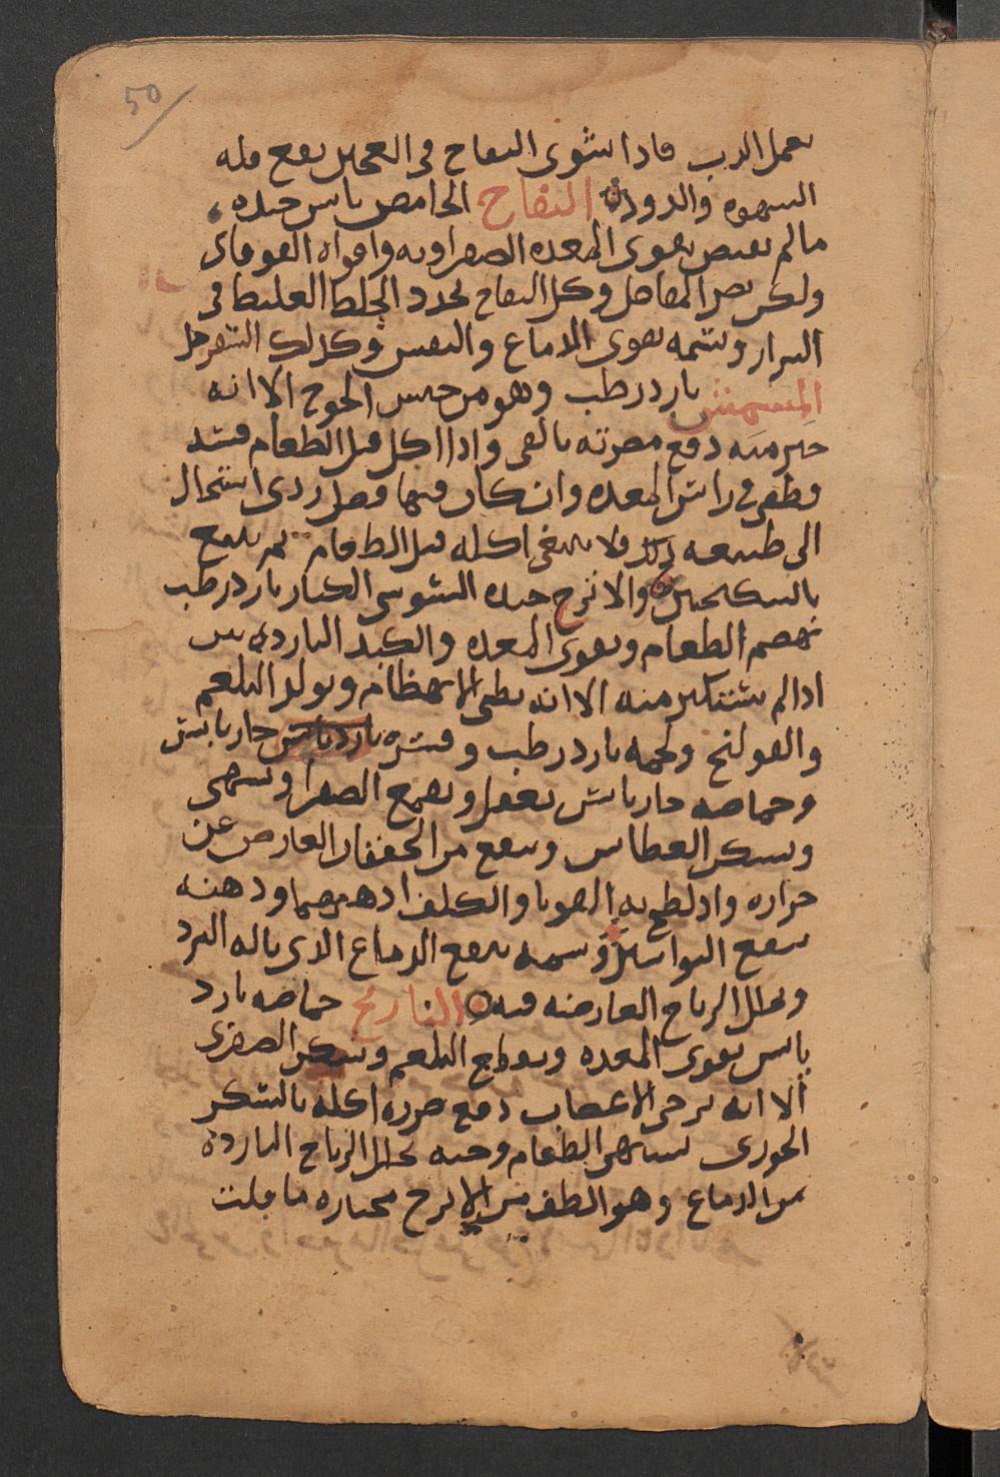 50
يعمل الرب فاذا شوى التفاح فى العجين نفع قله
الشهوه والدود التفاح الحامض يابس جيده
مالم يعفص يقوى المعده الصفراويه وافواه العوقاى
ولكن يضر المفاصل وكل التفاح يحدد الخلط الغليظ فى
البراز وشمه يقوى الدماغ والنفس وكذلك السفرجل
المشمش بارد رطب وهو من جنس الخوخ الا انه
خير منه دفع مضرته بالقى واذا اكل قبل الطعام فسد
وطفى فى راس المعده وان كان فيها فضل ردى استحال
الى طبيعه ذلك فلا ينبغى اكله قبل الطعام ثم يتبع
بالسكنجبين والاترج جيده السوسى الكبار بارد رطب
يهضم الطعام ويقوى المعده والكبد الباردتين
اذا لم يستكثر منه الا انه بطى الانهظام ويولد البلغم
والقولنج ولحمه بارد رطب وقشره بارد يابس حار يابس
وحماضه حار يابس يعقل ويقمع الصفرا ويشهى
ويسكن العطاس وينفع من الخفقان العارض عن
حراره واذ لطخ به القوبا والكلف اذهبهما ودهنه
ينفع البواسير وشمه ينفع الدماغ الذى ناله البرد
ويحلل الرياح العارضه فيه النارنج حماضه بارد
يابس يقوى المعده ويقطع البلغم ويسكن الصفرى
الا انه يرخى الاعصاب دفع ضرره اكله بالسكر
الخورى يشهى الطعام وحبه يحلل الرياح البارده
من الدماغ وهو الطف من الاترج مختاره ما قلت